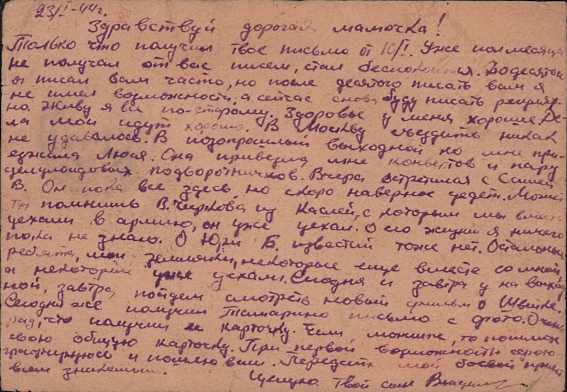 23/I-44г.
Здравствуй дорогая мамочка!
Только что получил твое письмо от 10/I. Уже полмесяца
не получал от вас писем, стал беспокоиться. До десятого
я писал вам часто, но после десятого писать вам я
не имел возможности, а сейчас снова буду писать регуляр-
но. Живу я все по-старому. Здоровье у меня хорошее, де-
ла мои идут хорошо. В Москву съездить никак
не удавалось. В позапрошлый выходной ко мне при-
езжала Люся. Она привезла мне конвертов и пару
целулоидовых подворотничков. Вчера встретился с Сашей
В. Он пока все здесь но скоро наверное уедет. Может
ты помнишь В. Чиркова из Каслей, с которым мы вместе
уехали в армию, он уже уехал. О его жизни я ничего
пока не знаю. О Юре Б. известий тоже нет. Остальные
ребята, мои земляки, некоторые еще вместе со мной
а некоторые уже уехали. Сегодня и завтра у нас выход-
ной, завтра пойдем смотреть новый фильм о Швейке.
Сегодня же получил Тамарино письмо с фото. Очень
рад, что получил ее карточку. Если можите, то пошлите
свою общую карточку. При первой возможности сфото-
графируюсь и пошлю вам. Передайте мой боевой привет
всем знакомым.
Целую. Твой сын